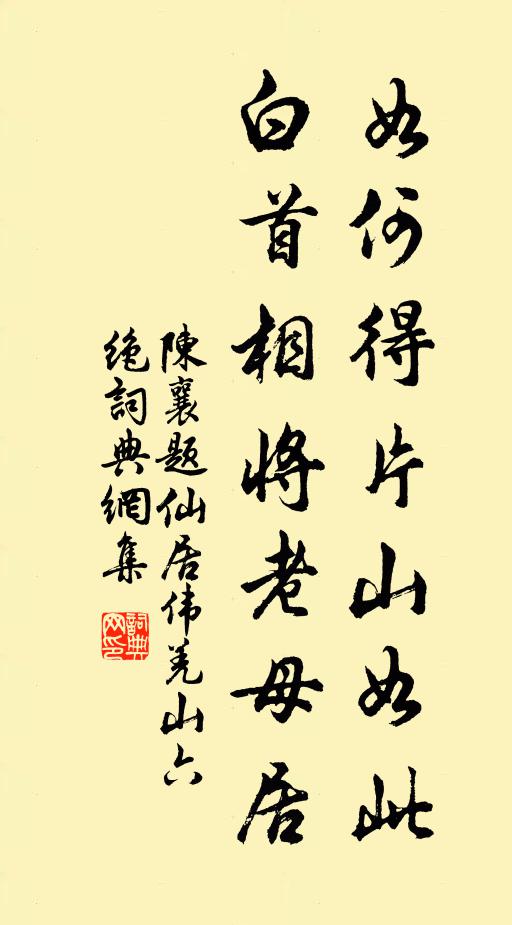 如何得片山如此
白首相将老母居
陳襄题仙居伟羌山六
绝詞典網集
詞典网印